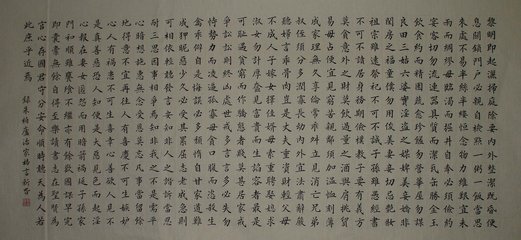 黎明即起灑掃庭除要內外整潔既昏便
息關鎖門戶必親自檢點一粥一飯當思
來處不易半絲半縷恆念物力維艱宜未
雨而綢繆毋臨渴而掘井自奉必須儉約
宴客切勿流連器具質而潔瓦缶勝金玉
飲食約而精園蔬愈珍饈勿營華屋勿謀
良田三姑六婆實淫盜之媒婢美妾嬌非
閨房之福童僕勿用俊美妻妾切忌艷妝
祖宗雖遠祭祀不可不誠子孫雖愚經書
不可不讀居身務期儉樸教子要有義方
莫貪意外之財莫飲過量之酒與肩挑貿
易毋佔便宜見窮苦親鄰須加溫恤刻薄
成家理無久享倫常乖舛立見消亡兄弟
叔侄須分多潤寡長幼內外宜法肅辭嚴
聽婦言乖骨肉豈是丈夫重資財輕父母
不成人子嫁女擇佳婿毋索重聘娶媳求
淑女勿計厚奩見富貴而生諂容者最是
可恥遇貧窮而作驕態者賤莫甚居家戒
爭訟訟則終凶處世戒多言言多必失勿
恃勢力而凌逼孤寡毋貪口腹而恣殺牲
禽乖僻自是悔誤必多頹惰自甘家道難
成狎昵惡少久必受其累屈志老成急則
可相依輕聽發言安知非人之譖訴當忍
耐三思因事相爭焉知非我之不是需平
心暗想施惠無念受恩莫忘凡事當留餘
地得意不宜再往人有喜慶不可生嫉妒
心人有禍患不可生喜幸心善欲人見不
是真善惡恐人知便是大惡見色而起淫
心報在妻女匿怨而用暗箭禍延子孫家
門和順雖饔飧不繼亦有餘歡國課早完
即囊橐無餘自得至樂讀書志在聖賢為
官心存君國守分安命順時聽天為人若
此庶乎近焉 錄朱柏廬治家格言